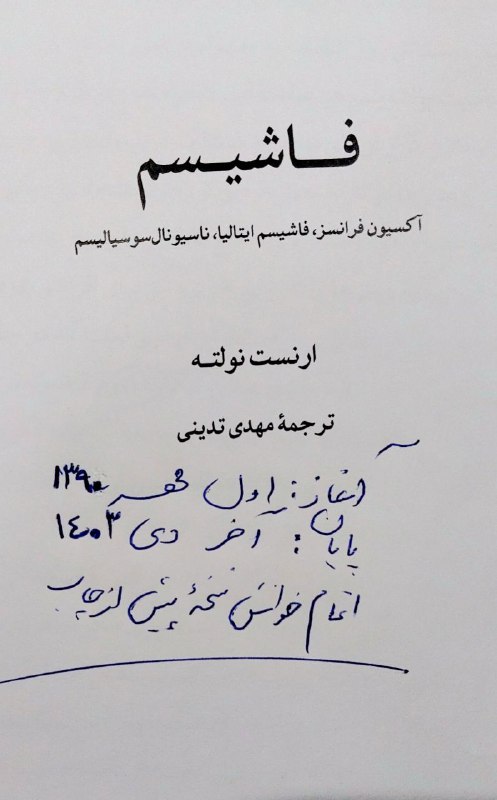 فاشیسم
آکسیون فرانسز، فاشیسم ایتالیا، ناسیونال‌سوسیالیسم
ارنست نولته
ترجمهٔ مهدی تدینی
آغاز: اول مهر ۱۳۹۰
پایان: آخر دی ۱۴۰۳
اتمام خوانش نسخهٔ پیش از چاپ